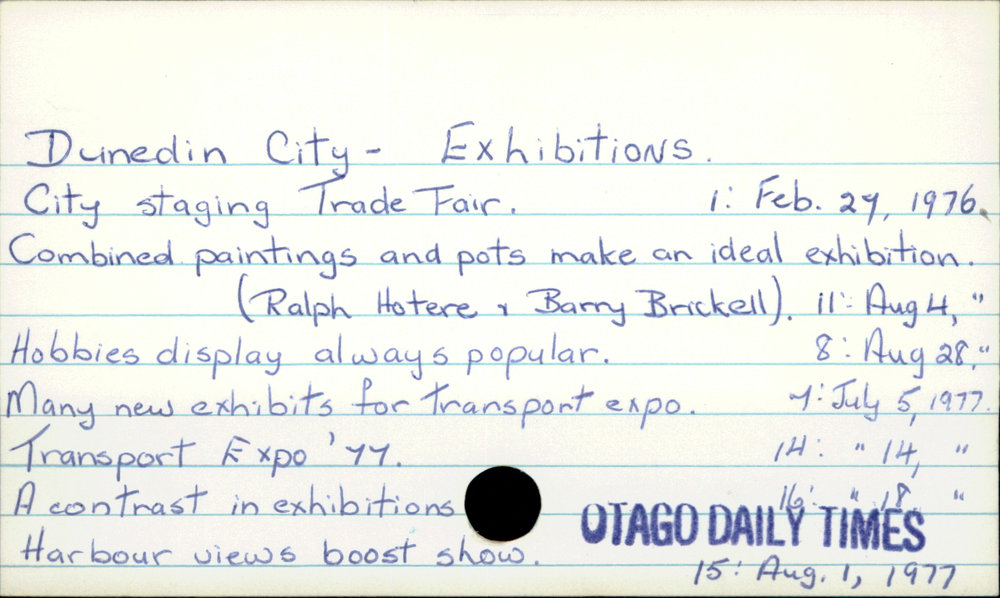 Dunedin City - Exhibitions.
City staging Trade Fair. 1: Feb. 27, 1976.
Combined paintings and pots make an ideal exhibition.
(Ralph Hotere & Barry Brickell). 11: Aug 4, "
Hobbies display always popular. 8: Aug 28, "
Many new exhibits for Transport expo. 7: July 5, 1977.
Transport Expo '77. 14: " 14, "
A contrast in exhibitions 16: " 18 "
OTAGO DAILY TIMES
Harbour views boost show. 15: Aug. 1, 1977